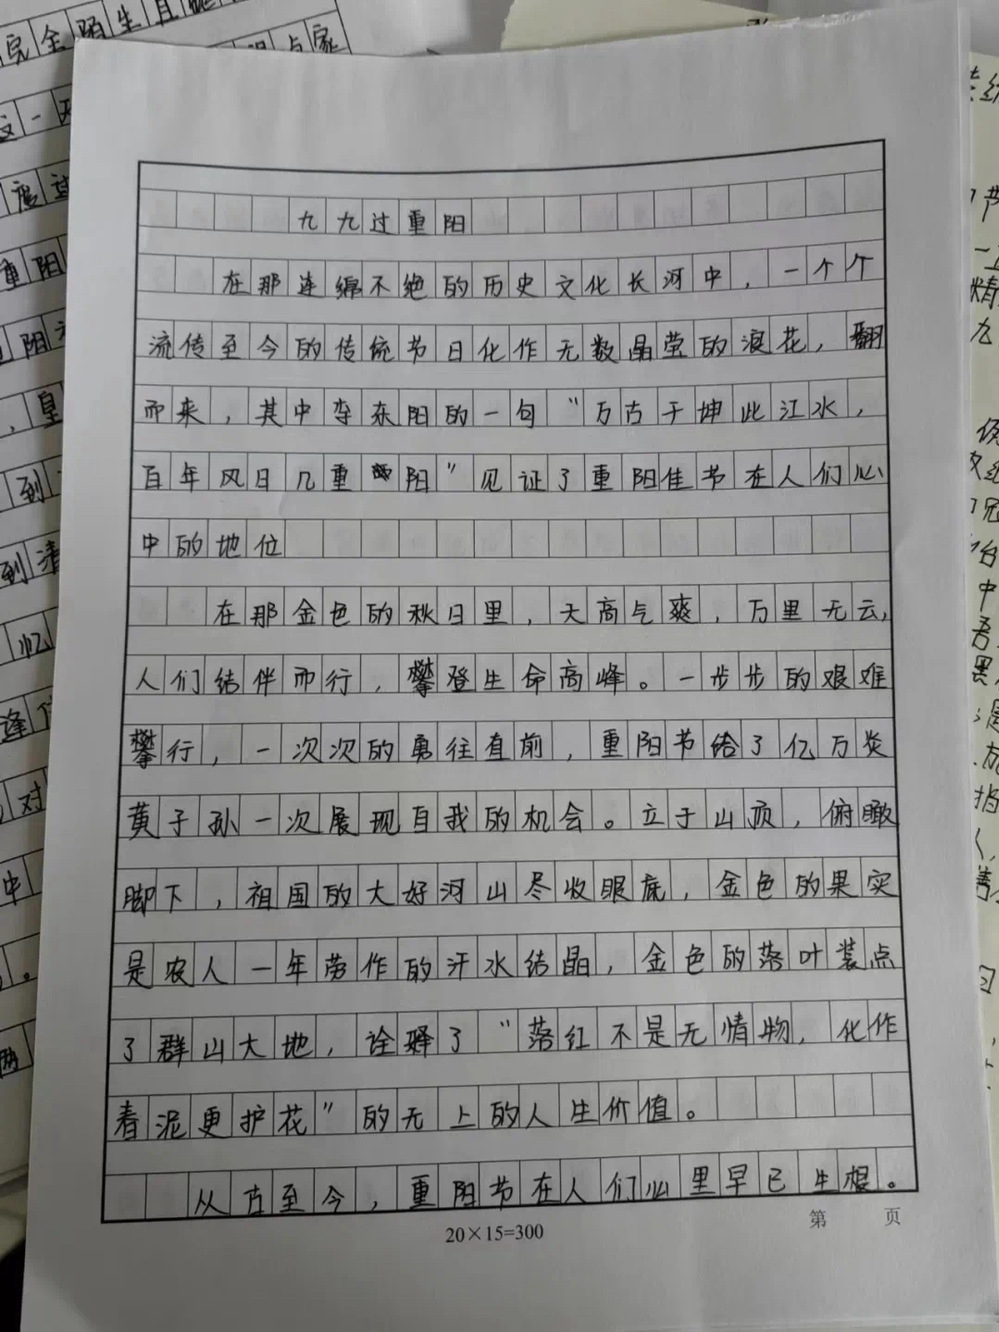 九九过重阳
在那连绵不绝的历史文化长河中，一个个
流传至今的传统节日化作无数晶莹的浪花，翻
而来，其中李东阳的一句“万古千坤此江水，
百年风日几重阳”见证了重阳佳节在人们心
中的地位
在那金色的秋日里，天高气爽，万里无云，
人们结伴而行，攀登生命高峰。一步步的艰难
攀行，一次次的勇往直前，重阳节给了亿万炎
黄子孙一次展现自我的机会。立于山顶，俯瞰
脚下，祖国的大好河山尽收眼底，金色的果实
是农人一年劳作的汗水结晶，金色的落叶装点
了群山大地，诠释了“落红不是无情物，化作
春泥更护花”的无上的人生价值。
从古至今，重阳节在人们心里早已生根。
20×15=300
第 页
完全陌生且
重阳
到
到清
忆
逢
对
中
两